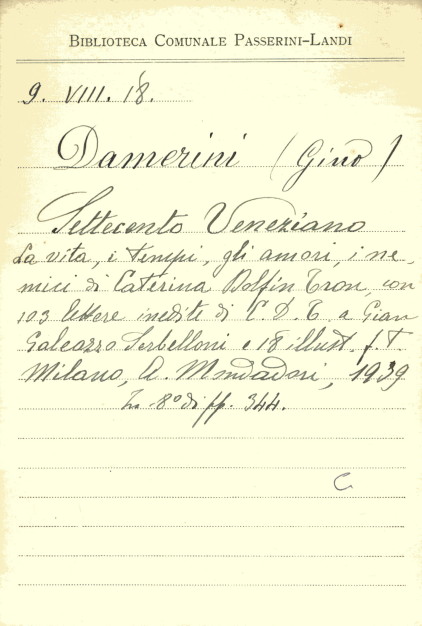 BIBLIOTECA COMUNALE PASSERINI-LANDI
9. VIII. 18.
Damerini (Gino)
Settecento Veneziano
La vita, i tempi, gli amori, i ne-
mici di Caterina Dolfin Tron con
103 lettere inedite di C. D. T. a Gian
Galeazzo Serbelloni e 18 illust. f. T.
Milano, A. Mondadori, 1939
In-8° di pp. 344.
C